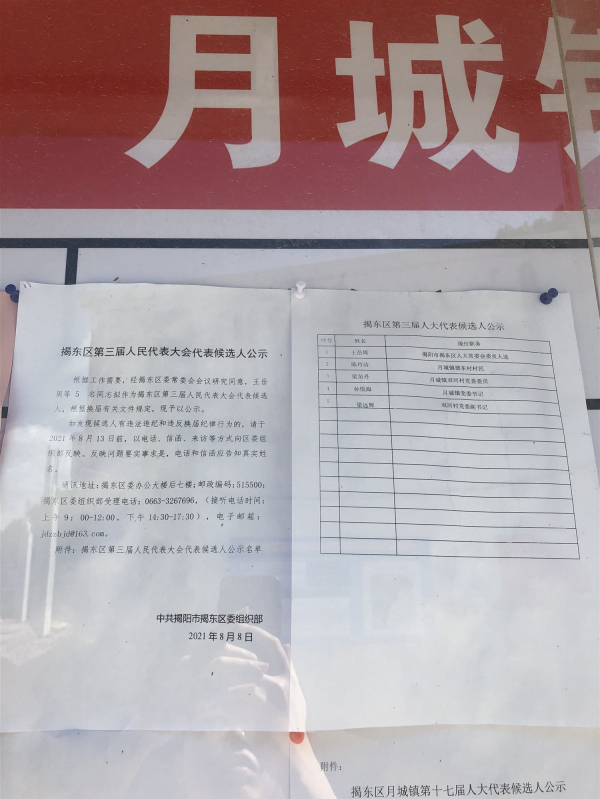 月城镇
揭东区第三届人民代表大会代表候选人公示
根据工作需要，经揭东区委常委会会议研究同意，王岳
周等 5 名同志拟作为揭东区第三届人民代表大会代表候选
人，根据换届有关文件规定，现予以公示。
如发现候选人有违法违纪和违反换届纪律行为的，请于
2021年8月13日前，以电话、信函、来访等方式向区委组
织部反映。反映问题要实事求是，电话和信函应告知真实姓
名。
通讯地址：揭东区委办公大楼后七楼；邮政编码：515500；
揭东区委组织部受理电话：0663-3267696，（接听电话时间：
上午 9：00-12:00，下午 14:30-17:30），电子邮箱：
jdzzbjd@163.com。
附件：揭东区第三届人民代表大会代表候选人公示名单
中共揭阳市揭东区委组织部
2021年8月8日
揭东区第三届人大代表候选人公示
序号 姓名 现任职务
1 王岳周 揭阳市揭东区人大常委会委员人选
2 陈丹洁 月城镇 村村民
3 月城镇 村党委委员
4 孙锐海 月城镇党委书记
5 梁远辉 村党委副书记
附件：
揭东区月城镇第十七届人大代表候选人公示